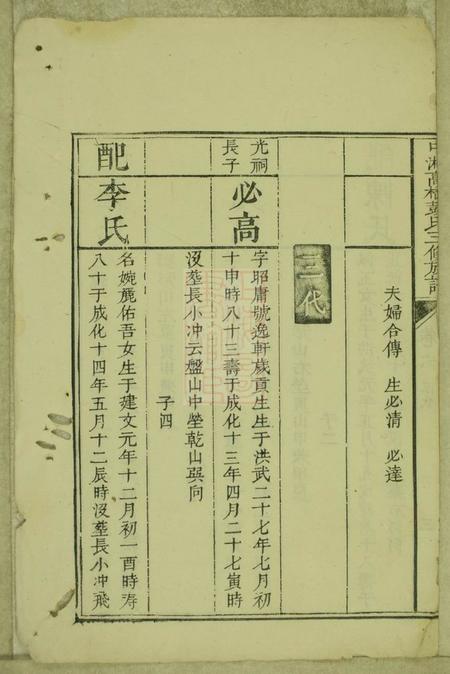 中湘高橋彭氏三修族譜
夫婦合傳 生必清 必達
三代
光嗣
長子
必高
字昭庸號逸軒歲貢生生于洪武二十七年七月初
十申時八十三壽于成化十三年四月二十七寅時
沒塟長小冲云盤山中塋乾山巽向
子四
配李氏
名婉麗佑吾女生于建文元年十二月初一酉時寿
八十于成化十四年五月十二辰時沒塟長小冲飛